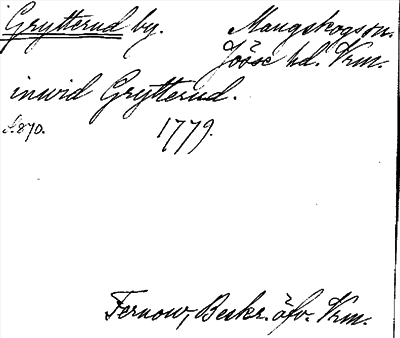 Grytterud by. Mangskogs sn.
Jösse hd. Vrm.
inwid Grytterud.
s. 870. 1779.
Fernow, Beskr. öfv. Vrm.